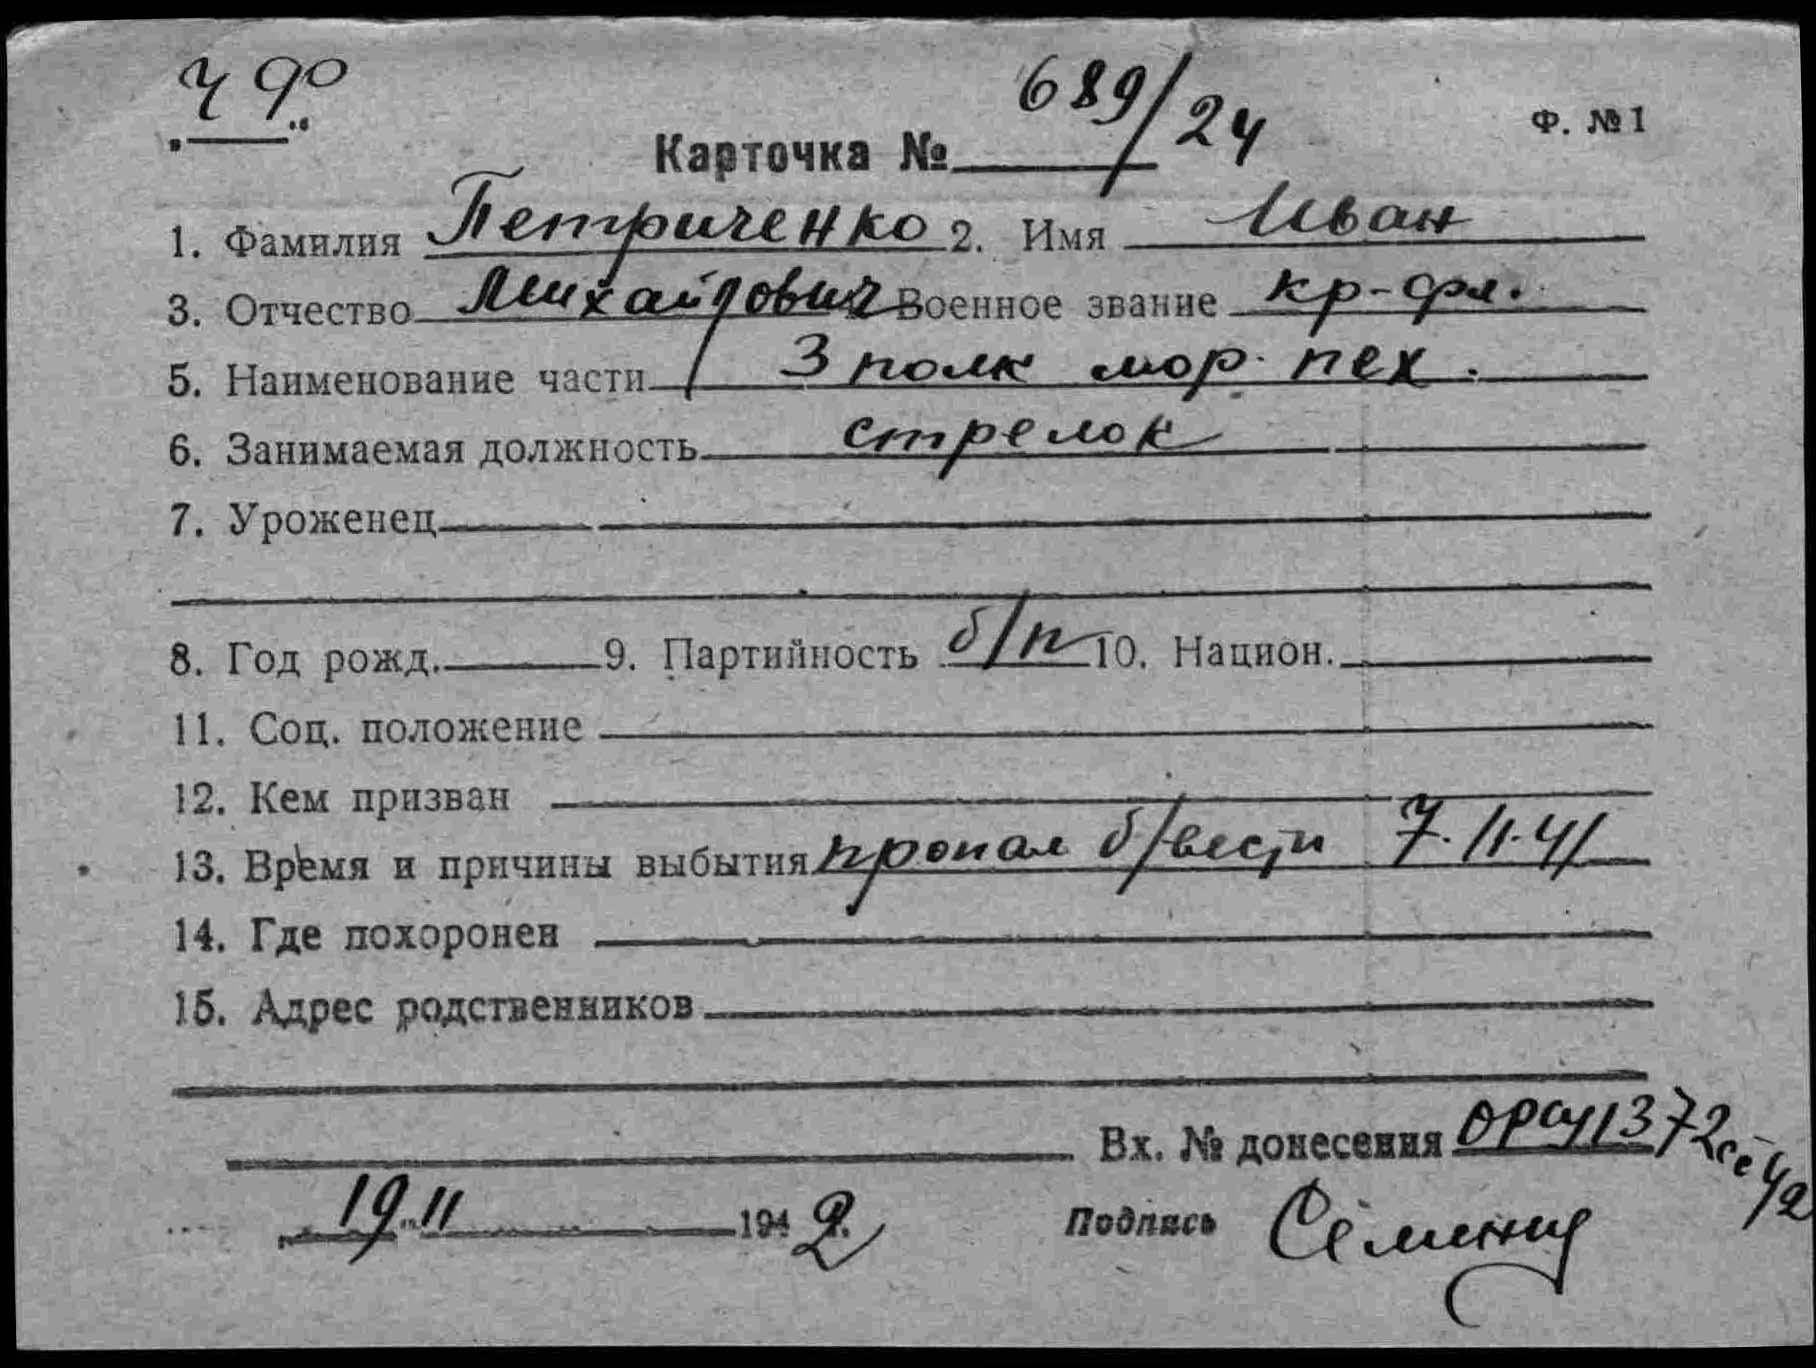 689/24
Ф. №1
Карточка №
1. Фамилия Петриченко 2. Имя Иван
3. Отчество Михайлович Военное звание кр-фл.
5. Наименование части 3 полк мор. пех.
6. Занимаемая должность стрелок
7. Уроженец
8. Год рожд. 9. Партийность б/п 10. Национ.
11. Соц. положение
12. Кем призван
13. Время и причины выбытия пропал б/вести 7.11.41
14. Где похоронен
15. Адрес родственников
Вх. № донесения ОРСУ 1372сс 42
19 11 1942.
Подпись